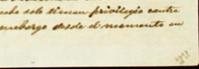 solo tienen privilegio contra
embargo desde el momento en